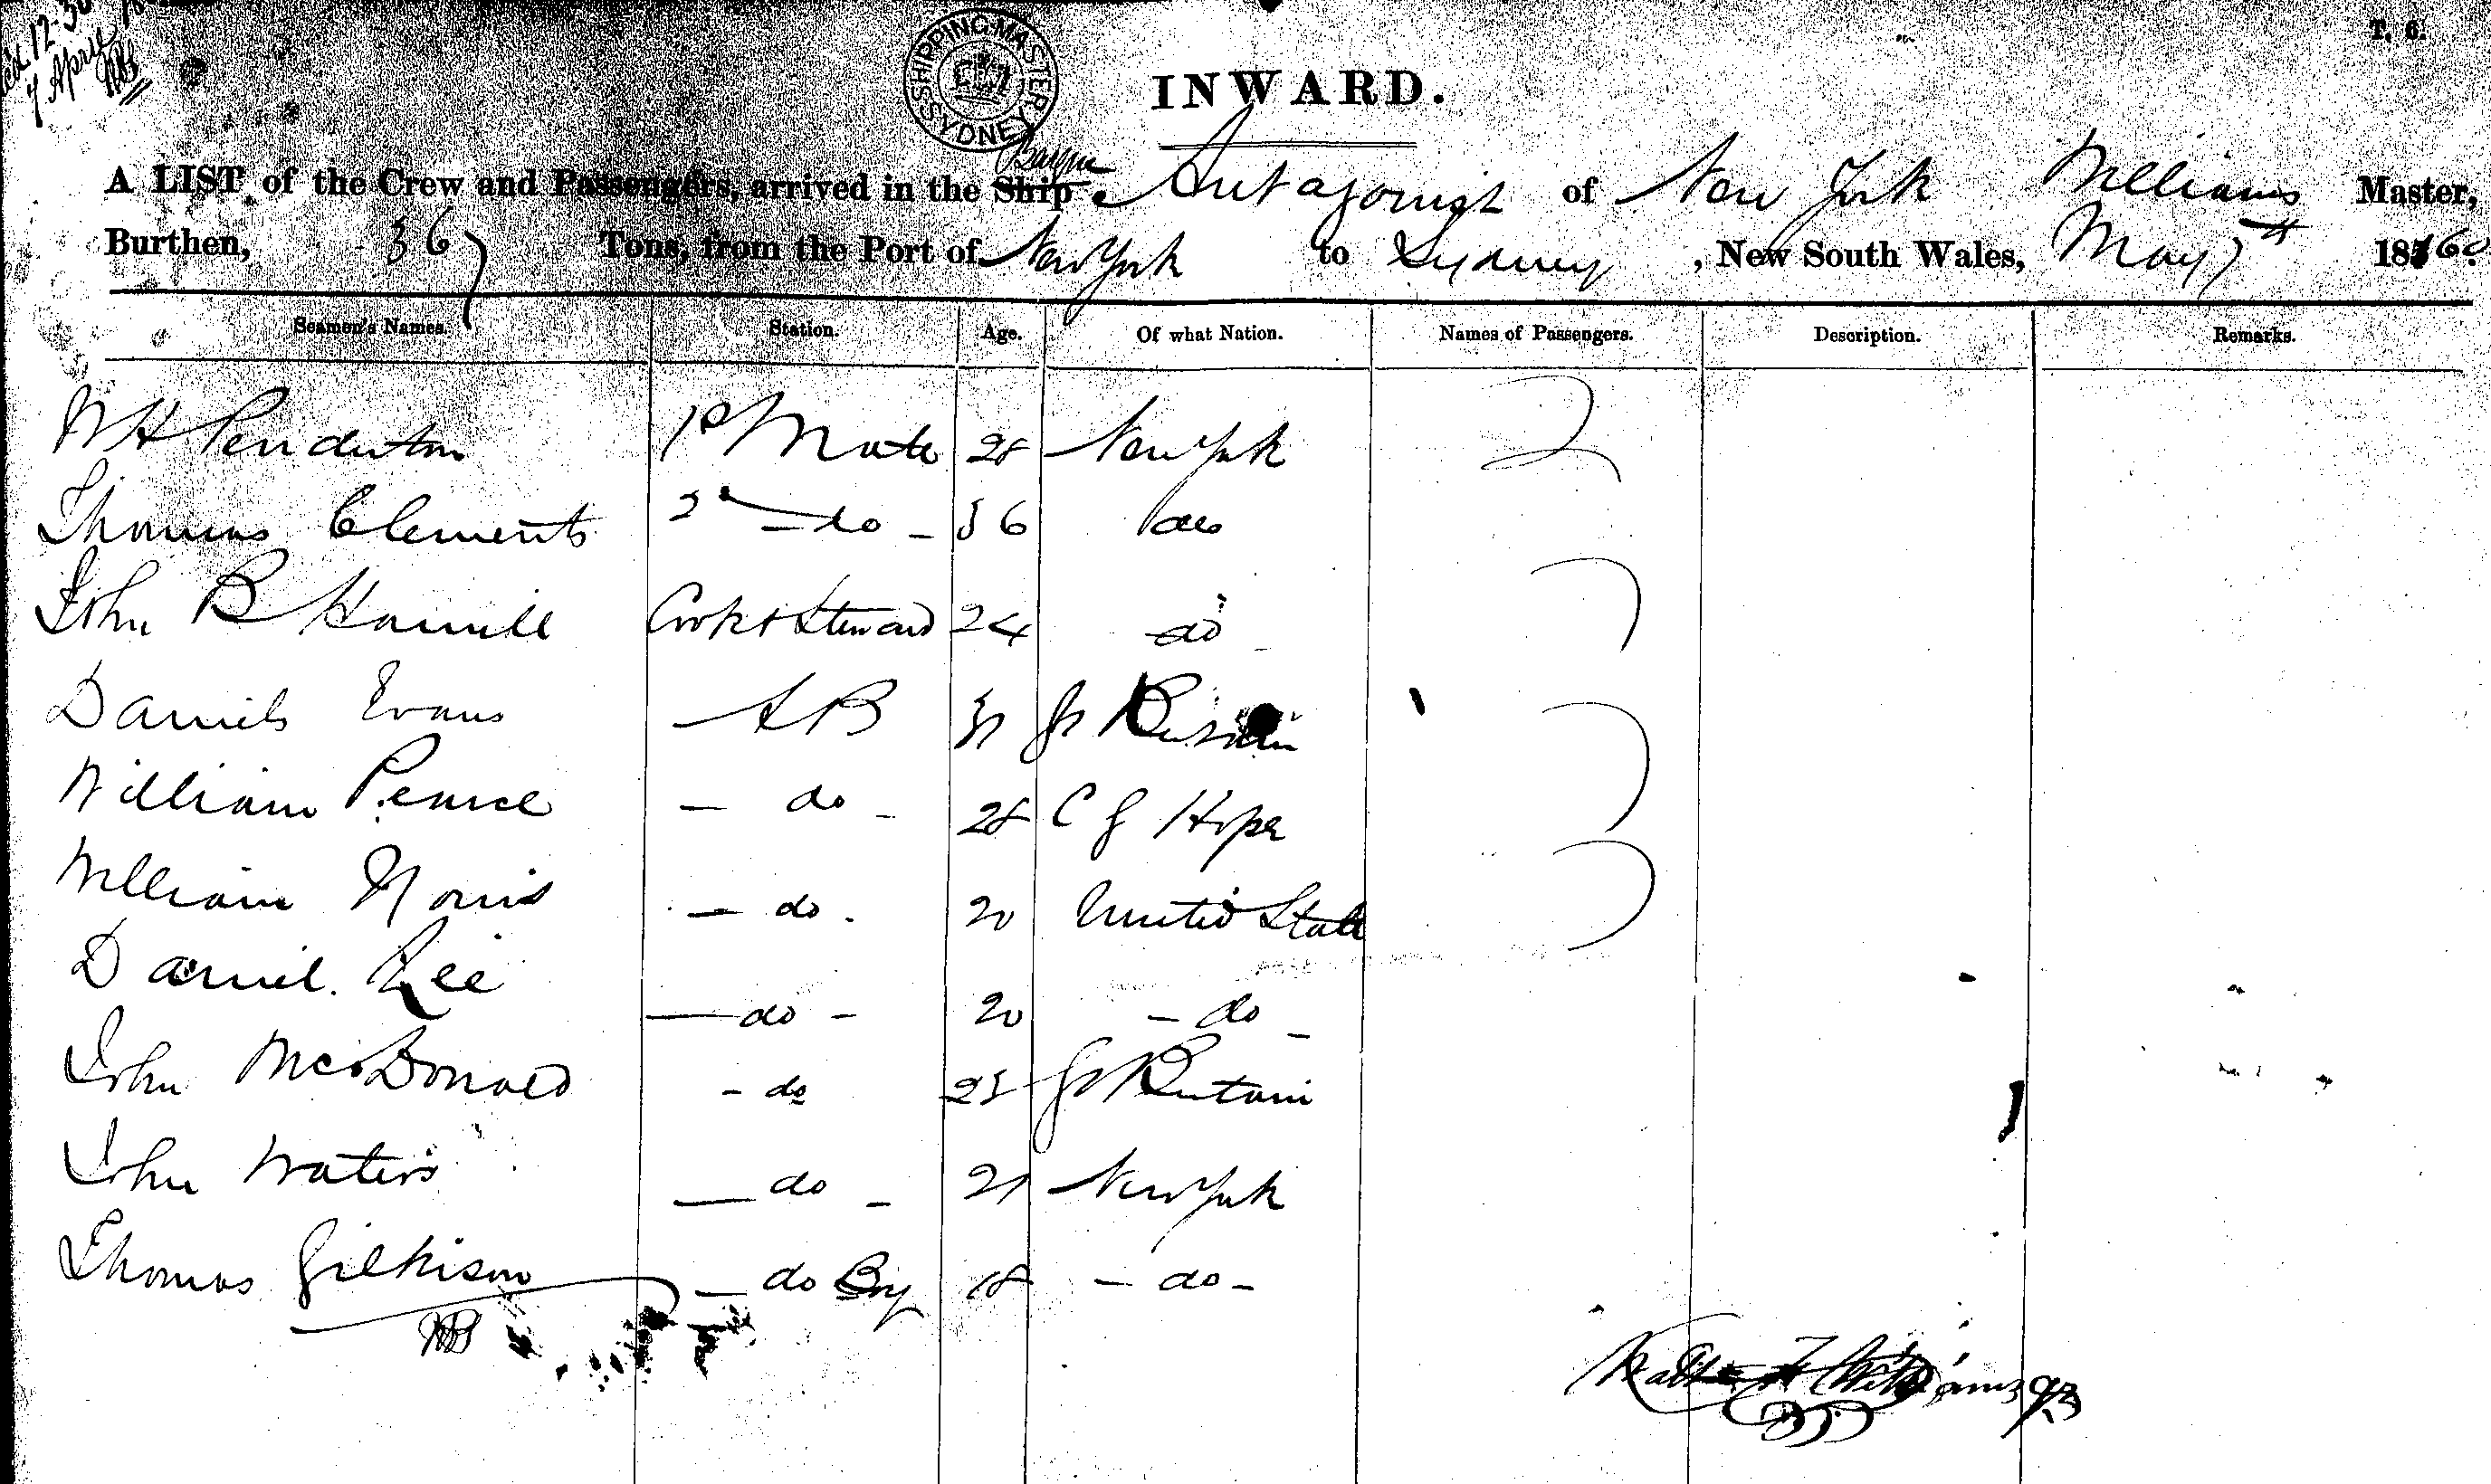 T. 6.
SHIPPING MASTER SYDNEY
INWARD.
Barque
A LIST of the Crew and Passengers, arrived in the Ship Antagonist of New York Williams Master,
Burthen, 367 Tons, from the Port of New York to Sydney, New South Wales, May 7th 1860
Seamen's Names. Station. Age. Of what Nation. Names of Passengers. Description. Remarks.
W H Penderton 1st Mate 28 New York
Thomas Clements 2d do 36 do
John B Hamill Cook & Steward 24 do
Daniels Evans A B Gt Britain
William Pearce do 28 C G Hope
William Norris do 20 United State
Daniel Lee do 20 do
John McDonald do 23 Gt Britain
John Waters do 21 New York
Thomas Gilkison do Boy 18 do